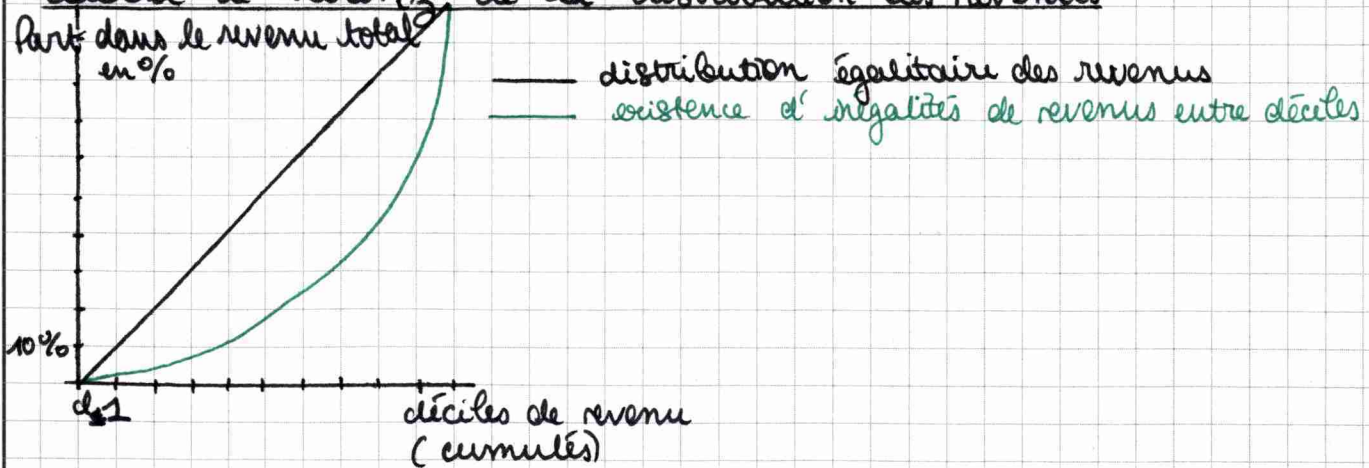 de la distribution des revenus
Part dans le revenu total
en %
distribution égalitaire des revenus
existence d'inégalités de revenus entre déciles
10%
d 1
déciles de revenu
(cumulés)